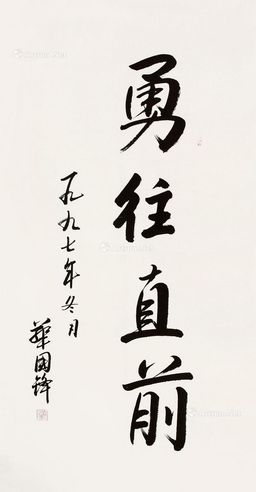 勇往直前
一九九七年冬月
華國鋒